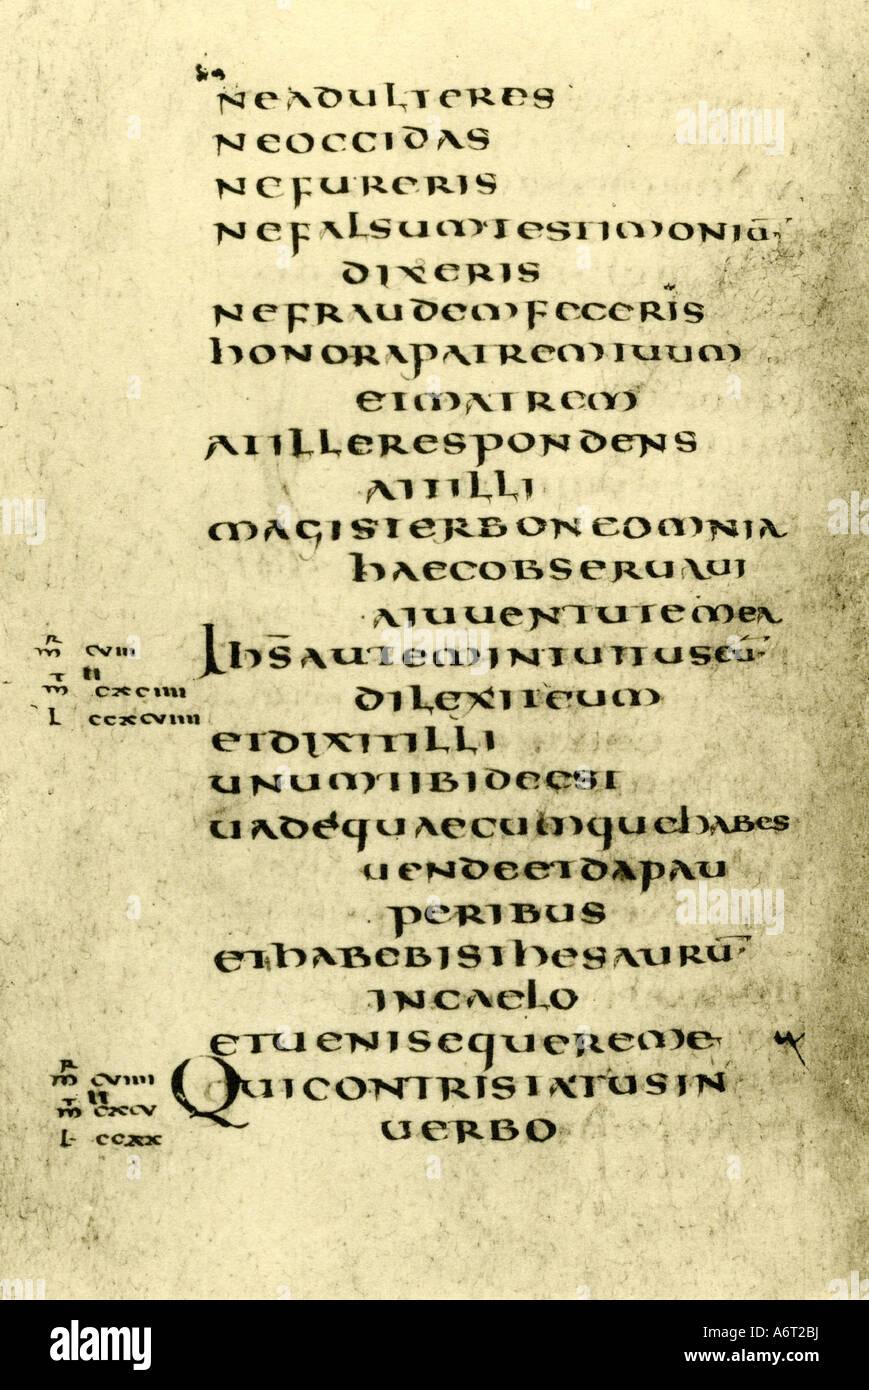 NEADULTERES
NEOCCIDAS
NEFURERIS
NEFALSUMTESTIMONIŪ
DIXERIS
NEFRAUDEMFECERIS
hONORAPATREMTUUM
ETMATREM
ATILLERESPONDENS
AITILLI
MAGISTERBONEOMNIA
hAECOBSERUAUI
AIUUENTUTEMEA
IhS̄AUTEMINTUITUSEŪ
DILEXITEUM
ETDIXITILLI
UNUMTIBIDEEST
UADEQUAECUMQUEhABES
UENDEETDAPAU
PERIBUS
EThABEBISThESAURŪ
INCAELO
ETUENISEQUEREME
QUICONTRISTATUSIN
UERBO
R
m CVIII
II
m CXCIIII
L CCXVIIII
R
m CVIIII
II
m CXCV
L CCXX
alamy
alamy stock photo
A6T2BJ
www.alamy.com